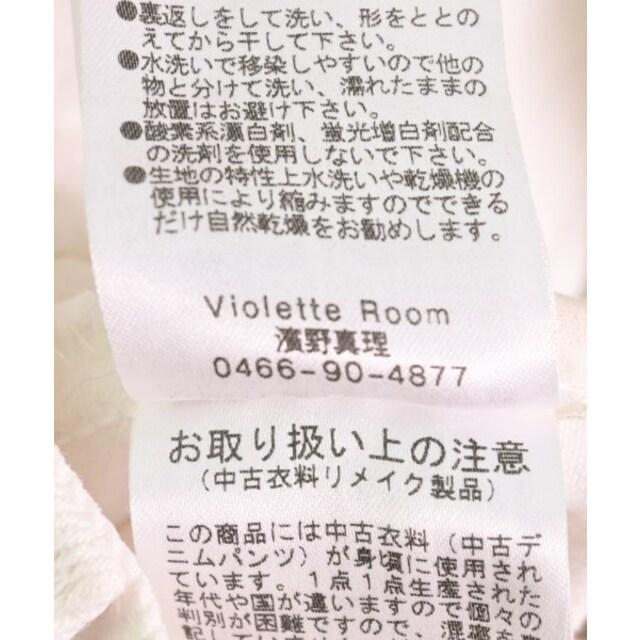 ●裏返しをして洗い、形をととの
えてから干して下さい。
●水洗いで移染しやすいので他の
物と分けて洗い、濡れたままの
放置はお避け下さい。
●酸素系漂白剤、蛍光増白剤配合
の洗剤を使用しないで下さい。
●生地の特性上水洗いや乾燥機の
使用により縮みますのでできる
だけ自然乾燥をお勧めします。
Violette Room
濱野真理
0466-90-4877
お取り扱い上の注意
(中古衣料リメイク製品)
この商品には中古衣料(中古デ
ニムパンツ)が身頃に使用され
ています。1点1点生産された
年代や国が違いますので個々の
判別が困難ですので、混